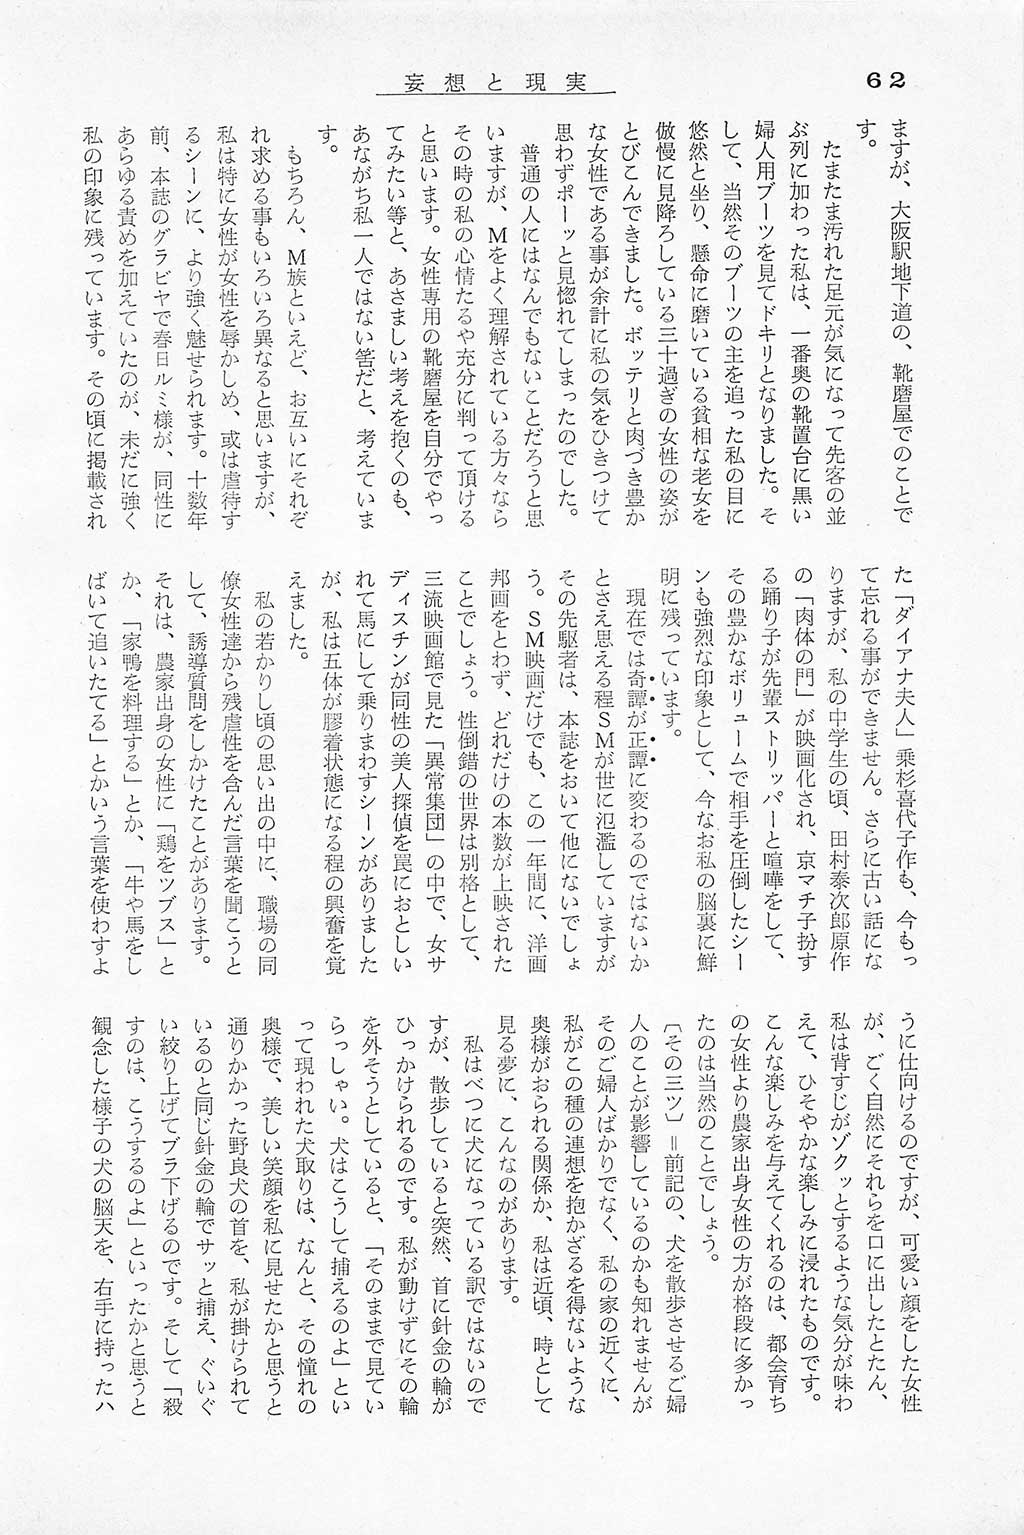 62
妄想と現実
ますが、大阪駅地下道の、靴磨屋でのことで
す。
たまたま汚れた足元が気になって先客の並
ぶ列に加わった私は、一番奥の靴置台に黒い
婦人用ブーツを見てドキリとなりました。そ
して、当然そのブーツの主を追った私の目に
悠然と坐り、懸命に磨いている貧相な老女を
倣慢に見降ろしている三十過ぎの女性の姿が
とびこんできました。ボッテリと肉づき豊か
な女性である事が余計に私の気をひきつけて
思わずポーッと見惚れてしまったのでした。
普通の人にはなんでもないことだろうと思
いますが、Mをよく理解されている方々なら
その時の私の心情たるや充分に判って頂ける
と思います。女性専用の靴磨屋を自分でやっ
てみたい等と、あさましい考えを抱くのも、
あながち私一人ではない筈だと、考えていま
す。
もちろん、M族といえど、お互いにそれぞ
れ求める事もいろいろ異なると思いますが、
私は特に女性が女性を辱かしめ、或は虐待す
るシーンに、より強く魅せられます。十数年
前、本誌のグラビヤで春日ルミ様が、同性に
あらゆる責めを加えていたのが、未だに強く
私の印象に残っています。その頃に掲載され
た「ダイアナ夫人」乗杉喜代子作も、今もっ
て忘れる事ができません。さらに古い話にな
りますが、私の中学生の頃、田村泰次郎原作
の「肉体の門」が映画化され、京マチ子扮す
る踊り子が先輩ストリッパーと喧嘩をして、
その豊かなボリュームで相手を圧倒したシー
ンも強烈な印象として、今なお私の脳裏に鮮
明に残っています。
現在では奇譚が正譚に変わるのではないか
とさえ思える程SMが世に氾濫していますが
その先駆者は、本誌をおいて他にないでしょ
う。SM映画だけでも、この一年間に、洋画
邦画をとわず、どれだけの本数が上映された
ことでしょう。性倒錯の世界は別格として、
三流映画館で見た「異常集団」の中で、女サ
ディスチンが同性の美人探偵を罠におとしい
れて馬にして乗りまわすシーンがありました
が、私は五体が膠着状態になる程の興奮を覚
えました。
私の若かりし頃の思い出の中に、職場の同
僚女性達から残虐性を含んだ言葉を聞こうと
して、誘導質問をしかけたことがあります。
それは、農家出身の女性に「鶏をツブス」と
か、「家鴨を料理する」とか、「牛や馬をし
ばいて追いたてる」とかいう言葉を使わすよ
うに仕向けるのですが、可愛い顔をした女性
が、ごく自然にそれらを口に出したとたん、
私は背すじがゾクッとするような気分が味わ
えて、ひそやかな楽しみに浸れたものです。
こんな楽しみを与えてくれるのは、都会育ち
の女性より農家出身女性の方が格段に多かっ
たのは当然のことでしょう。
〔その三ツ〕＝前記の、犬を散歩させるご婦
人のことが影響しているのかも知れませんが
そのご婦人ばかりでなく、私の家の近くに、
私がこの種の連想を抱かざるを得ないような
奥様がおられる関係か、私は近頃、時として
見る夢に、こんなのがあります。
私はべつに犬になっている訳ではないので
すが、散歩していると突然、首に針金の輪が
ひっかけられるのです。私が動けずにその輪
を外そうとしていると、「そのままで見てい
らっしゃい。犬はこうして捕えるのよ」とい
って現われた犬取りは、なんと、その憧れの
奥様で、美しい笑顔を私に見せたかと思うと
通りかかった野良犬の首を、私が掛けられて
いるのと同じ針金の輪でサッと捕え、ぐいぐ
い絞り上げてブラ下げるのです。そして「殺
すのは、こうするのよ」といったかと思うと
観念した様子の犬の脳天を、右手に持ったハ